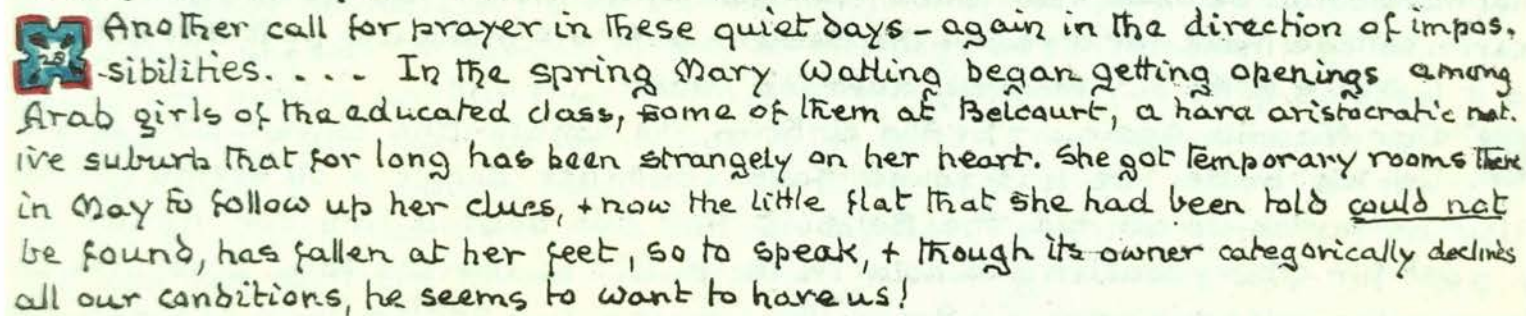 28 Another call for prayer in these quiet days - again in the direction of impos-
-sibilities. . . . In the spring Mary Watling began getting openings among
Arab girls of the educated class, some of them at Belcourt, a hard aristocratic nat-
ive suburb that for long has been strangely on her heart. She got temporary rooms there
in May to follow up her clues, + now the little flat that she had been told could not
be found, has fallen at her feet, so to speak, + though its owner categorically declines
all our conditions, he seems to want to have us!